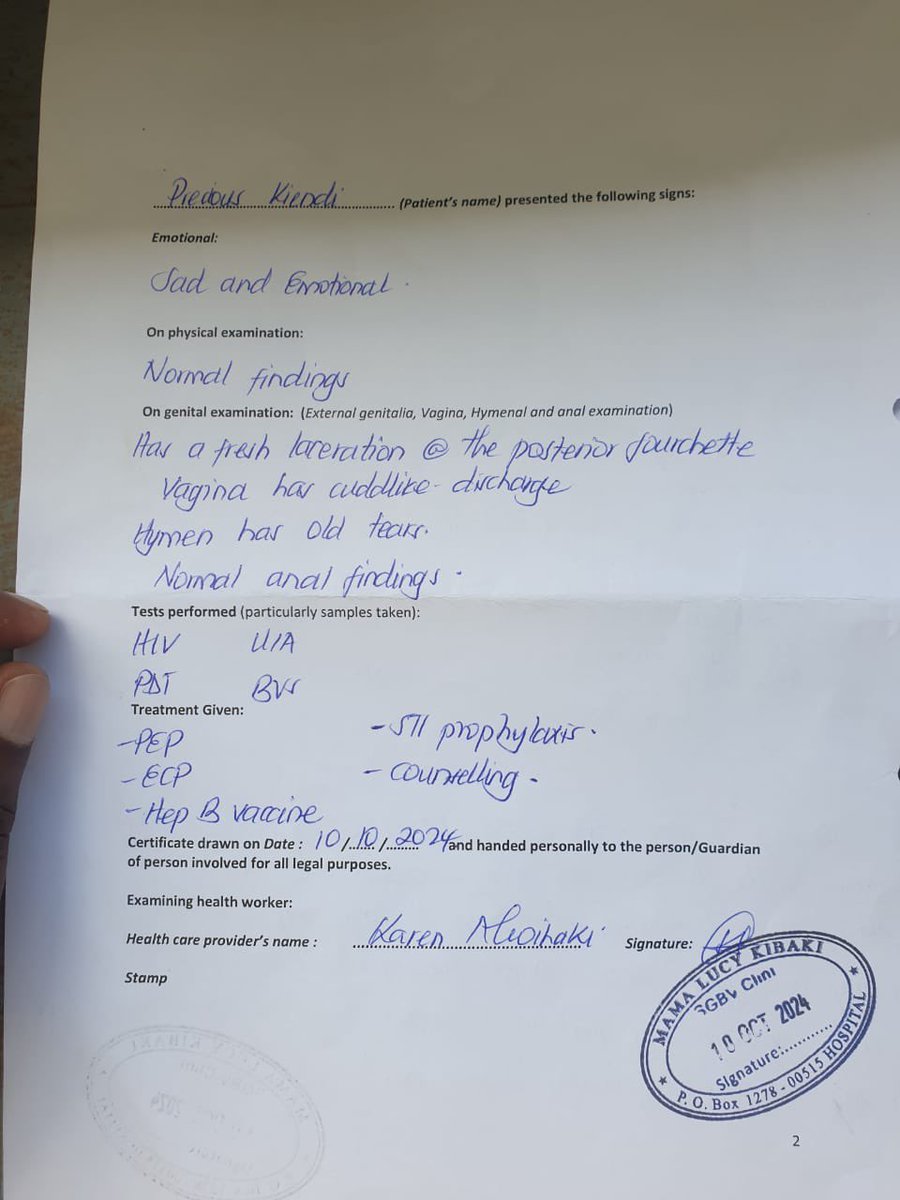 Precious Kiendi (Patient's name) presented the following signs:
Emotional:
Sad and Emotional.
On physical examination:
Normal findings
On genital examination: (External genitalia, Vagina, Hymenal and anal examination)
Has a fresh laceration @ the posterior fourchette
Vagina has cuddlike discharge
Hymen has old tears.
Normal anal findings.
Tests performed (particularly samples taken):
HIV U/A
PDT
Treatment Given:
-PEP - STI prophylaxis.
-ECP - Counselling.
-Hep B vaccine
Certificate drawn on Date : 10/10/2024 and handed personally to the person/Guardian
of person involved for all legal purposes.
Examining health worker:
Health care provider's name : Karen Signature:
Stamp
MAMA LUCY KIBAKI
SGBV Clini
10 OCT 2024
Signature:............
P. O. Box 1278 - 00515 HOSPITAL
2